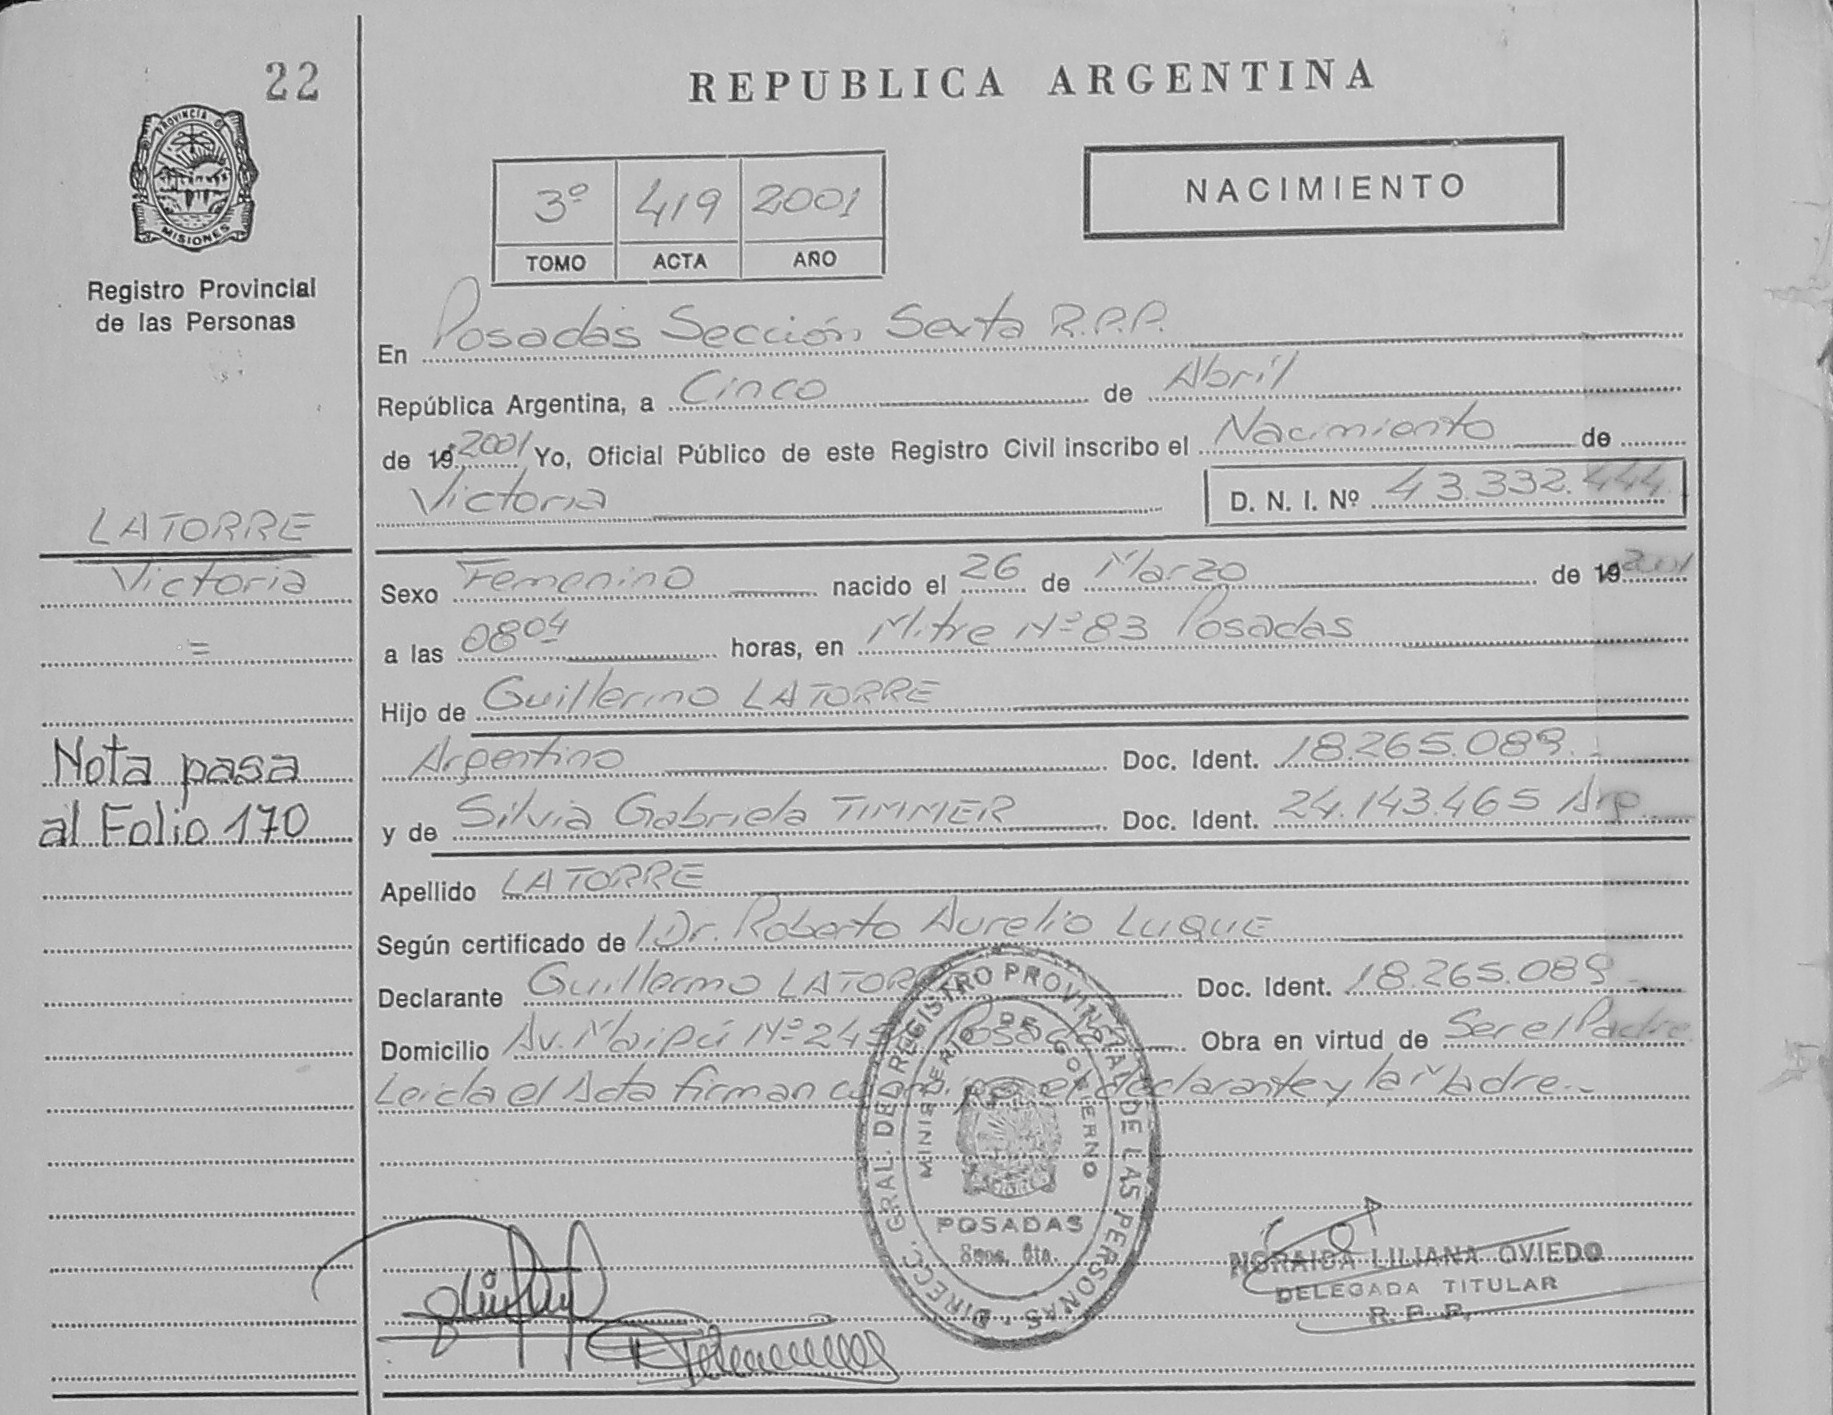 22
REPUBLICA ARGENTINA
PROVINCIA DE
MISIONES
Registro Provincial
de las Personas
3º 419 2001
TOMO ACTA AÑO
NACIMIENTO
En Posadas Sección Sexta R.P.P.
República Argentina, a Cinco de Abril
de 19 2001 Yo, Oficial Público de este Registro Civil inscribo el Nacimiento de
Victoria D. N. I. Nº 43.332.444
LATORRE
Victoria
=
Sexo Femenino nacido el 26 de Marzo de 19 2001
a las 08 04 horas, en Mitre Nº 83 Posadas
Hijo de Guillermo LATORRE
Argentino Doc. Ident. 18.265.089
y de Silvia Gabriela TIMMER Doc. Ident. 24.143.465 Arg
Nota pasa
al Folio 170
Apellido LATORRE
Según certificado de Dr. Roberto Aurelio LUQUE
Declarante Guillermo LATORRE Doc. Ident. 18.265.089
Domicilio Av. Maipú Nº Posadas Obra en virtud de Ser el Padre
Leída el Acta firman el declarante y la Madre
DIRECC. GRAL. DEL REGISTRO PROVINCIAL DE LAS PERSONAS
MINISTERIO DE GOBIERNO
POSADAS
NORAIDA LILIANA OVIEDO
DELEGADA TITULAR
R. P. P.